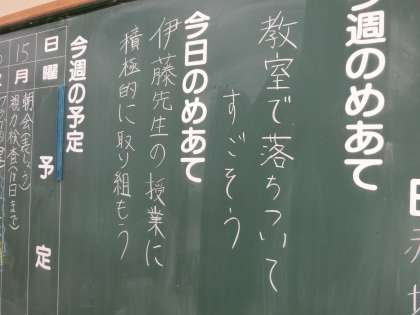 今週のめあて
教室で落ちついて
すごそう
今日のめあて
伊藤先生の授業に
積極的に取り組もう
今週の予定
日 曜 予 定
15 月 朝会(表しょう)
視力検査(19日まで)